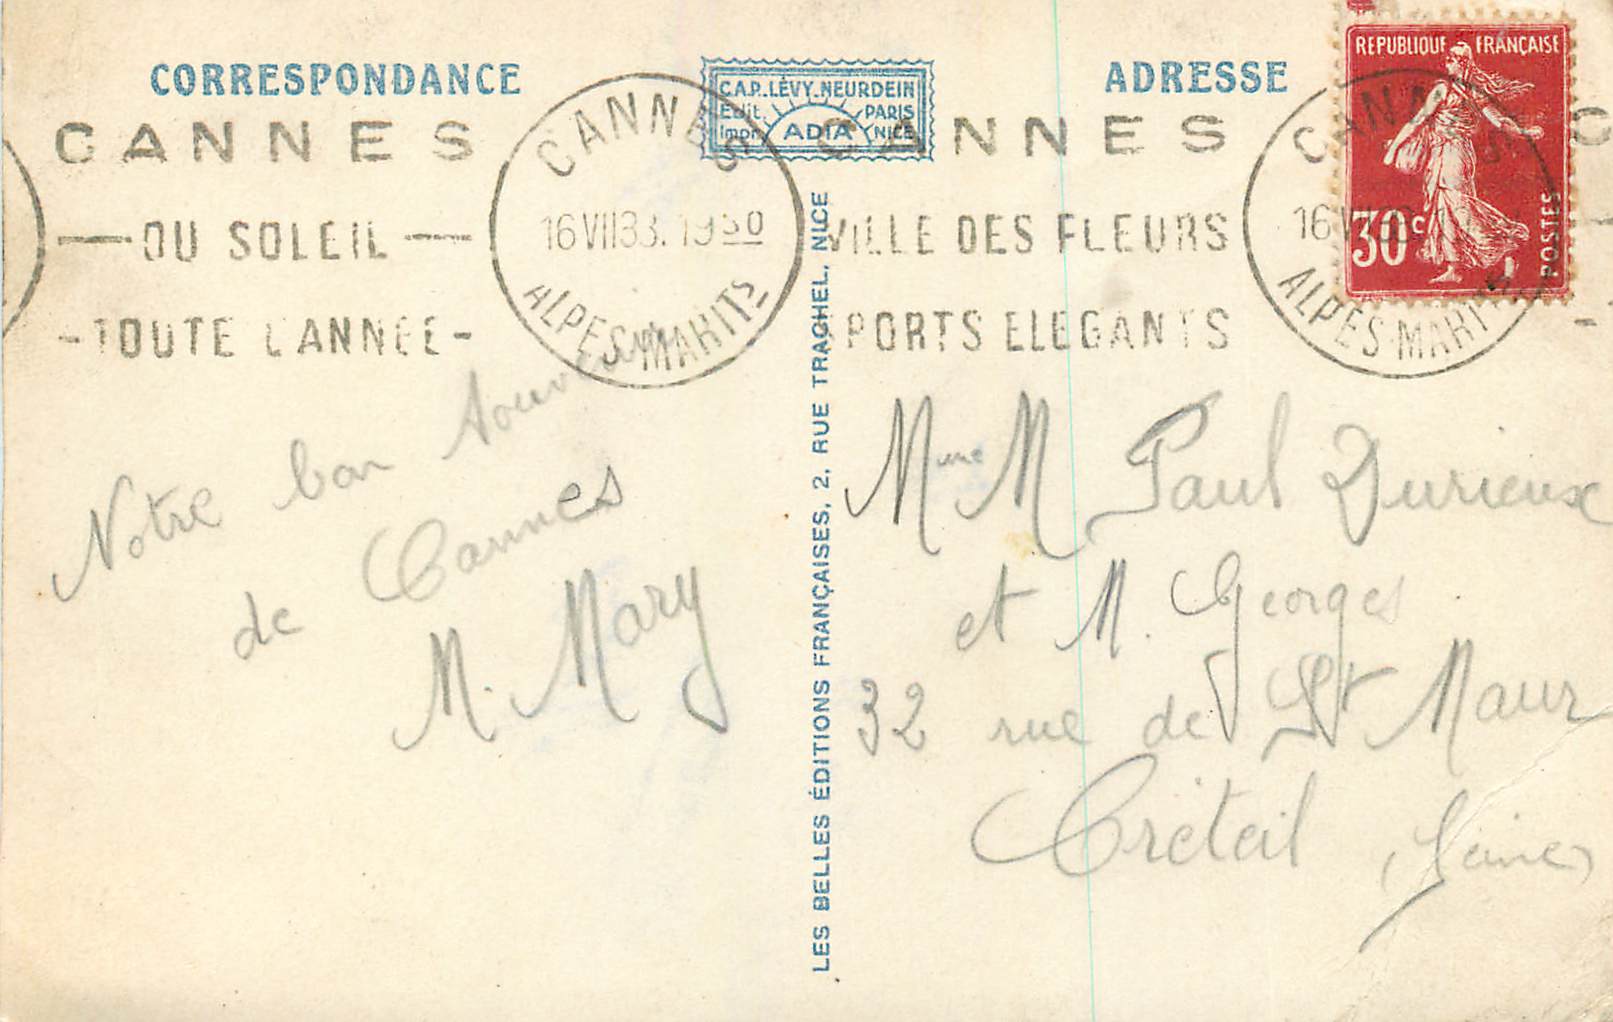 CORRESPONDANCE
C.A.P. LÉVY-NEURDEIN
Édit. PARIS
Impr. ADIA NICE
ADRESSE
REPUBLIQUE FRANÇAISE
30c
POSTES
CANNES
DU SOLEIL
TOUTE L'ANNÉE
CANNES
16 VII 33. 19 30
ALPES-MARITS
CANNES
VILLE DES FLEURS
SPORTS ELEGANTS
CANNES
16 VII
ALPES-MARITS
LES BELLES ÉDITIONS FRANÇAISES, 2, RUE TRACHEL, NICE
Notre bon souvenir
de Cannes
M. Mary
Mme M Paul Durieux
et M. Georges
32 rue de St Maur
Créteil (Seine)